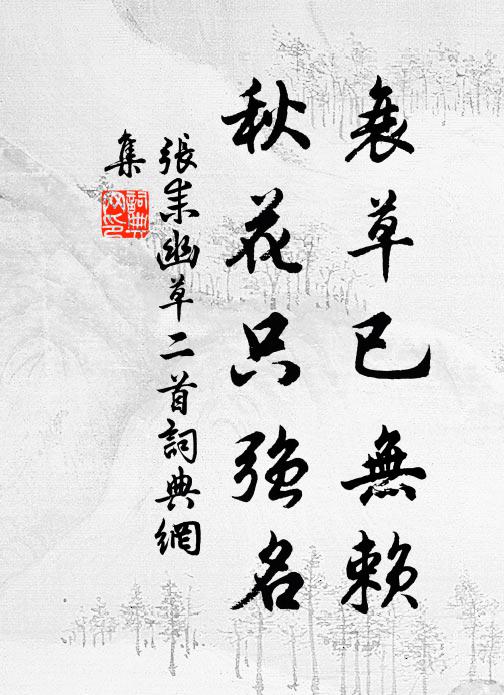 衰草已無賴
秋花只強名
張耒幽草二首詞典網
集
詞典網印